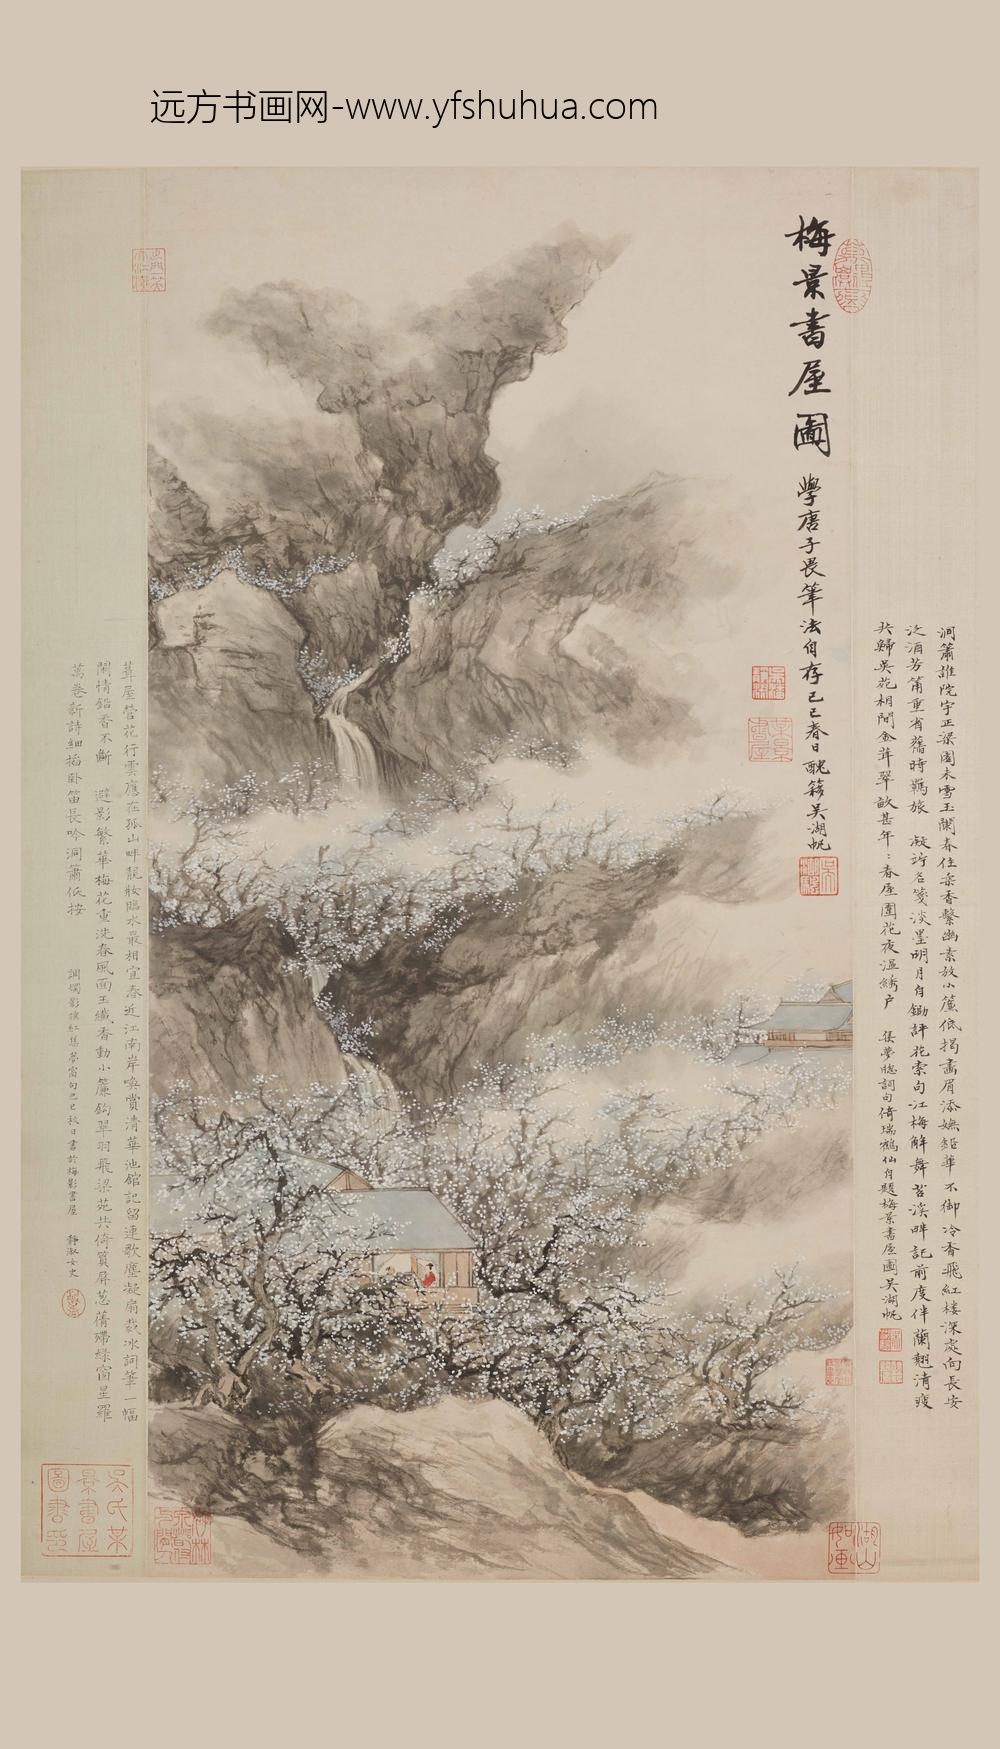 远方书画网-www.yfshuhua.com
梅景書屋圖
學唐子畏筆法自存己巳春日醜簃吳湖帆
洞簫誰院宇正梁園未雪玉闌春住柔香繫幽素放小簾低揭畫眉添嫵鉛華不御冷香飛紅樓深處向長安
泛酒芳筩重省舊時羈旅 凝竚名箋淡墨明月自鋤評花索句江梅解舞苕溪畔記前度伴蘭翹清瘦
共歸吳苑相開金茸翠畝甚年年春屋圍花夜溫繡戶 集夢窗詞句倚瑞鶴仙自題梅景書屋圖吳湖帆
葺屋營花行雲應在孤山畔靚妝臨水最相宜春近江南岸喚賞清華池館記留連歌塵凝扇裁冰詞筆一幅
閑情鉛香不斷 避影繁華梅花重洗春風面玉纖香動小簾鈎翠羽飛梁苑共倚篔屏葱蒨殢綠窗星羅
萬卷新詩細搯臥笛長吟洞簫低按
調燭影搖紅集夢窗句己巳秋日書於梅影書屋 靜淑女史
吳氏某景書屋圖書印
湖山如画